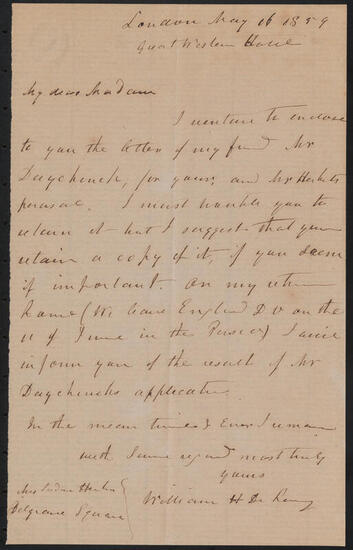 London May 16 1859
Great Western Hotel
My dear Madam
I venture to enclose
to you the letter of my friend Mr
Duyckinck, for yours, and Mr Herberts
perusal. I must trouble you to
return it but I suggest that you
retain a copy of it, if you deem
it important. On my return
home (We leave England D V on the
11 of June in the Persia) I will
inform you of the result of Mr
Duyckincks application.
In the mean time & Ever I remain
with Sincere regard most truly
yours
William H De
Mrs Herbert
Belgrave Square